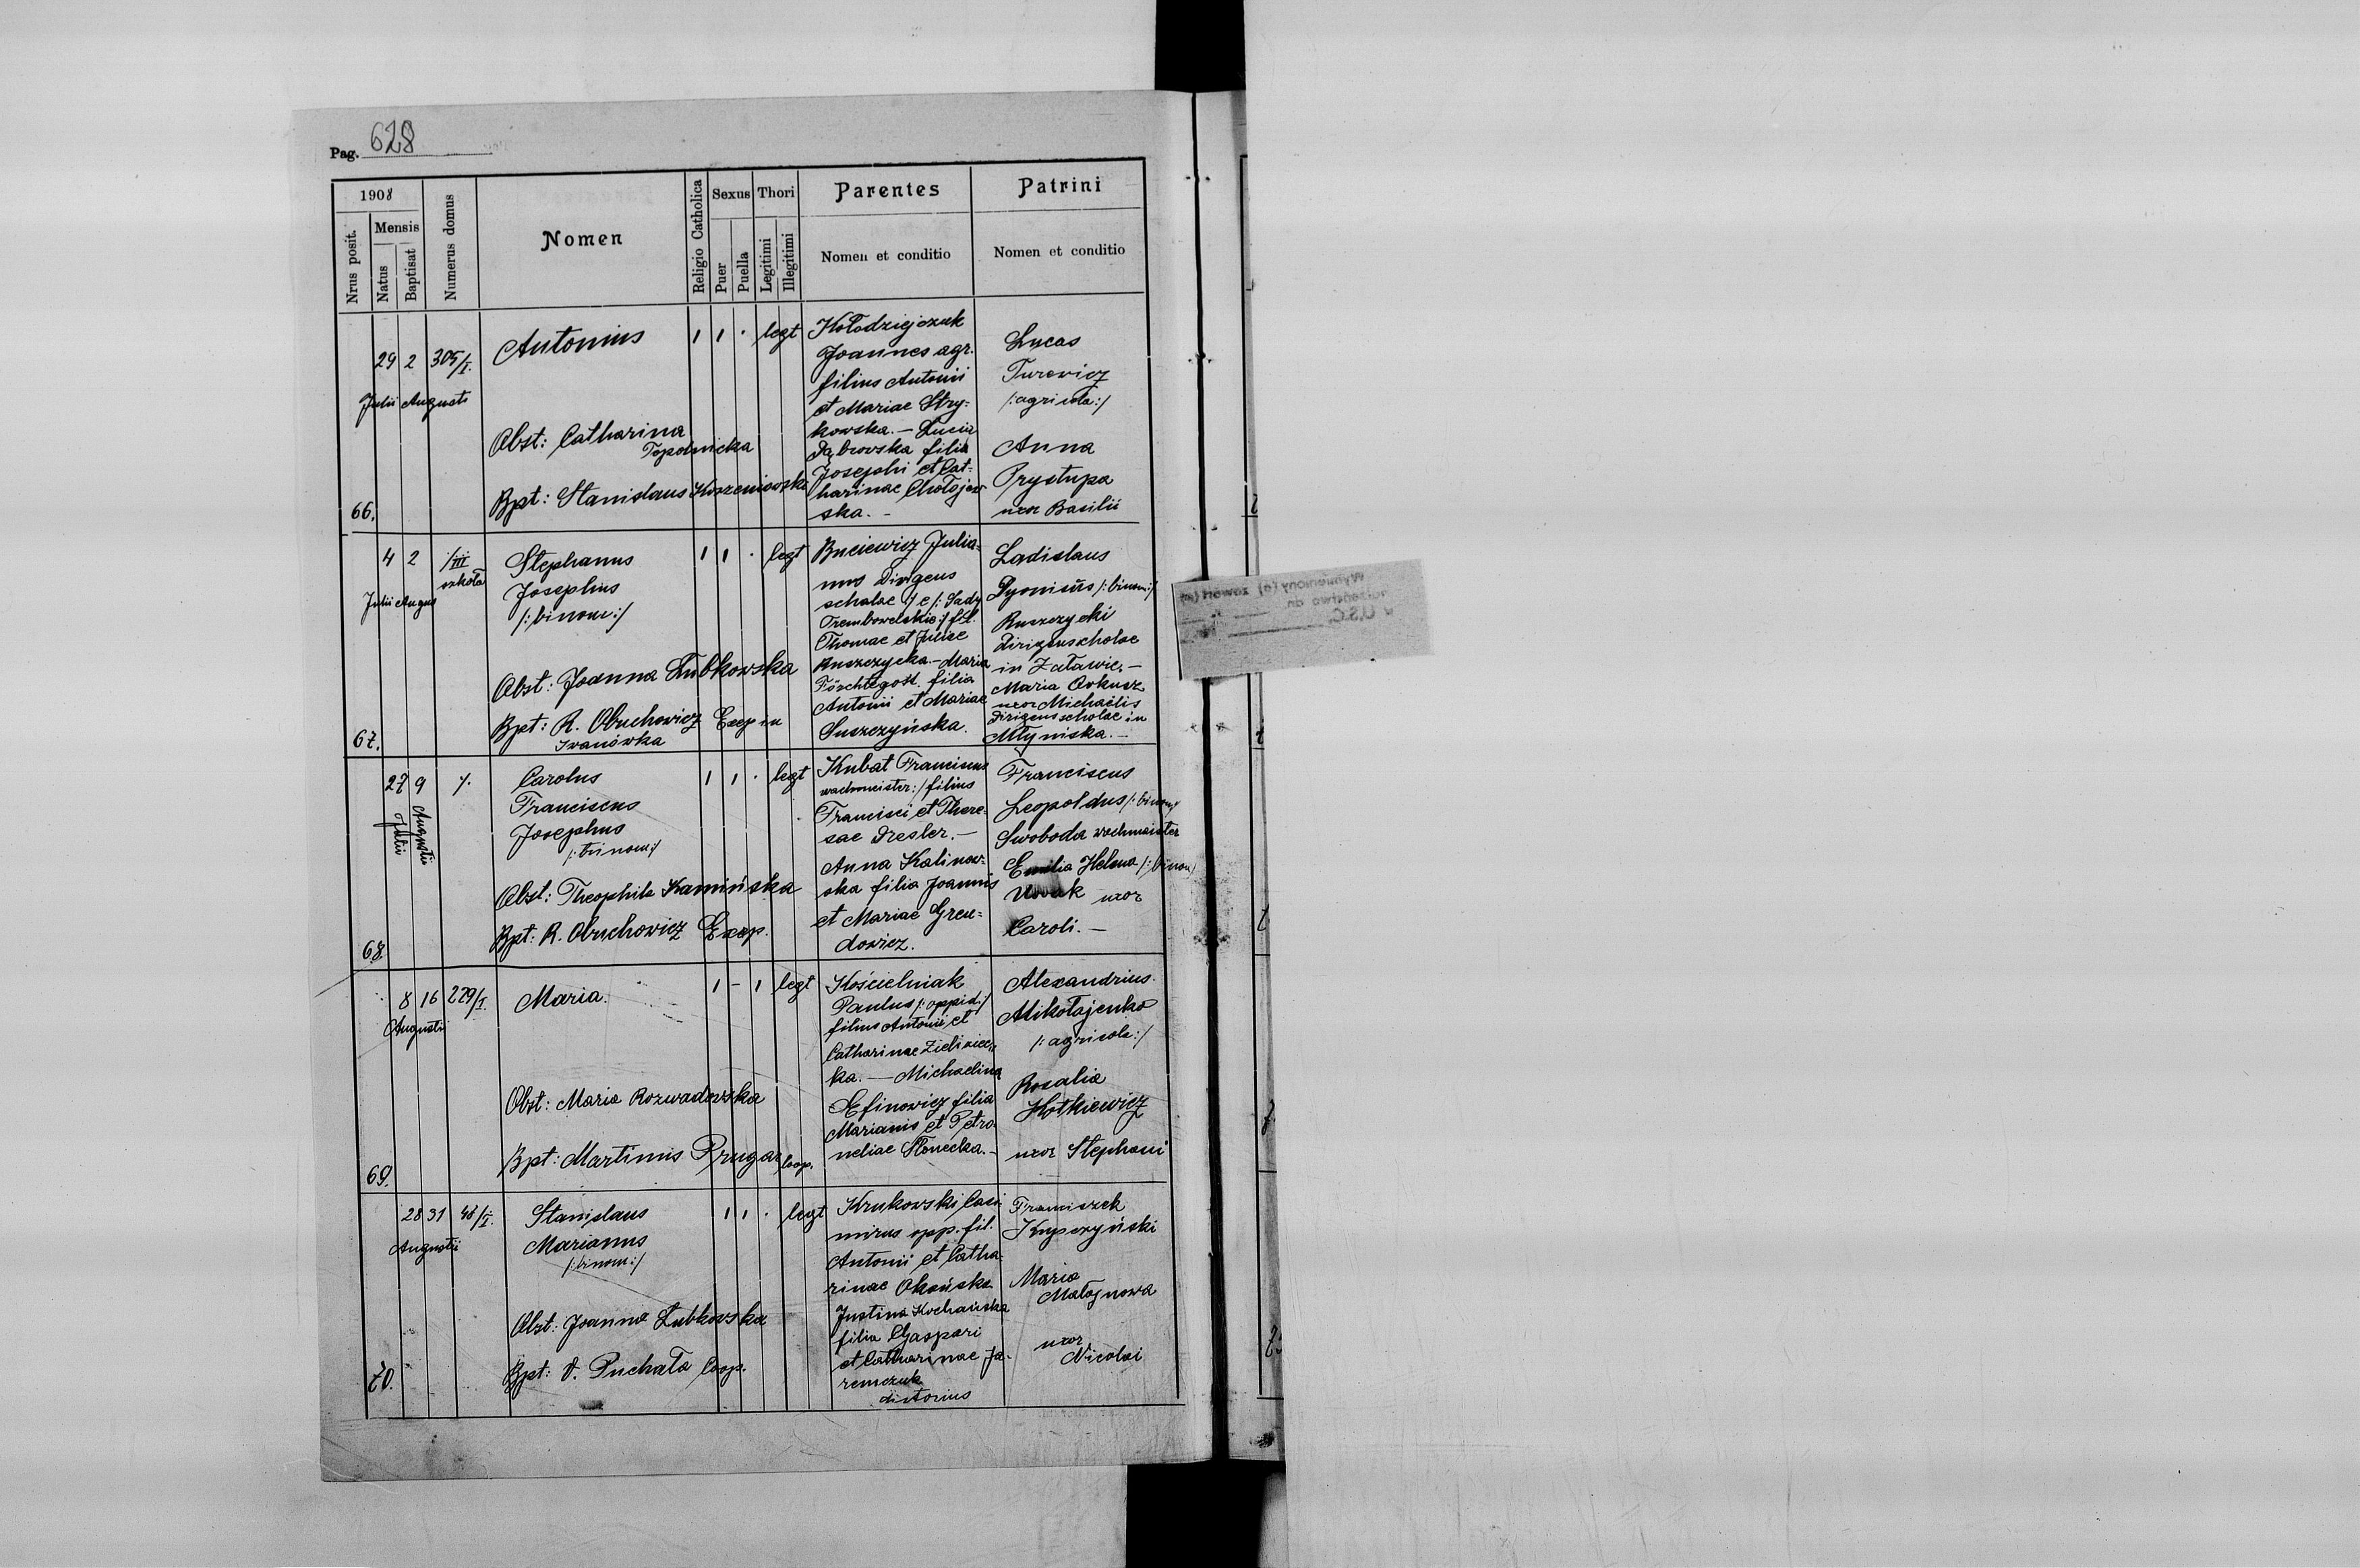 Pag. 628
1908
Nrus posit.
Mensis
Natus
Baptisat
Numerus domus
Nomen
Religio Catholica
Sexus
Puer
Puella
Thori
Legitimi
Illegitimi
Parentes
Nomen et conditio
Patrini
Nomen et conditio
66.
29 2 305/I.
Julii Augusti
Antonius
Obst: Catharina
Topolnicka
Bpt: Stanislaus Korzeniowski
1 1 · legt
Kołodziejczuk
Joannes agr.
filius Antonii
et Mariae Stry=
kowska. — Lucia
Dąbrowska filia
Josephi et Cat=
harinae Chołojew
ska. —
Lucas
Turewicz
/:agricola:/
Anna
Prystupa
uxor Basilii
67.
4 2 /III
szkoła
Julii Augus
Stephanus
Josephus
/:binom:/
Obst: Joanna Łubkowska
Bpt: R. Obuchowicz Exp in
Iwanówka
1 1 · legt
Buciewicz Julia=
nus Dirigens
scholae
Trembowelskie:/ fil.
Thomae et Juliae
Ruszczycka. — Maria
filia
Antonii et Mariae
Suszczyńska.
Ladislaus
Dyonisius /:binom:/
Ruszczycki
dirigens scholae
in Załawie. —
Maria Arkusz
uxor Michaëlis
dirigens scholae in
Młyniska. —
68.
27 9 /.
Julii
Augustii
Carolus
Franciscus
Josephus
/:trinom:/
Obst: Theophila Kamińska
Bpt: R. Obuchowicz Exp.
1 1 · legt
Kubat Franciscus
wachmeister:/ filius
Francisci et There=
sae Dresler. —
Anna Kalinow=
ska filia Joannis
et Mariae Gren=
dowicz.
Franciscus
Leopoldus /:binom:/
Swoboda wachmeister
Emilia Helena /:binom/
Novak uxor
Caroli. —
69.
8 16 229/I.
Augustii
Maria.
Obst: Maria Rozwadowska
Bpt: Martinus Prugar Coop.
1 - 1 legt
Kościelniak
Paulus /:oppid:/
filius Antonii et
Catharinae
ka. — Michaelina
Efinowicz filia
Marianis et Petro
neliae Słonecka. —
Alexandrius
Mikołajenko
/:agricola:/
Rosalia
Hotkiewicz
uxor Stephani
70.
28 31 48/I.
Augustii
Stanislaus
Marianus
/:binom:/
Obst: Joanna Łubkowska
Bpt: V. Puchała Coop.
1 1 · legt
Krukowski Casi
mirus opp. fil.
Antonii et Catha=
rinae Okońska.
Justina Kochańska
filia Gaspari
et Catharinae Ja=
remczuk
Franciszek
Kupczyński
Maria
uxor
Nicolai
Wymieniony(a) zawarł(a)
małżeństwo dn
w U.S.C. Nr